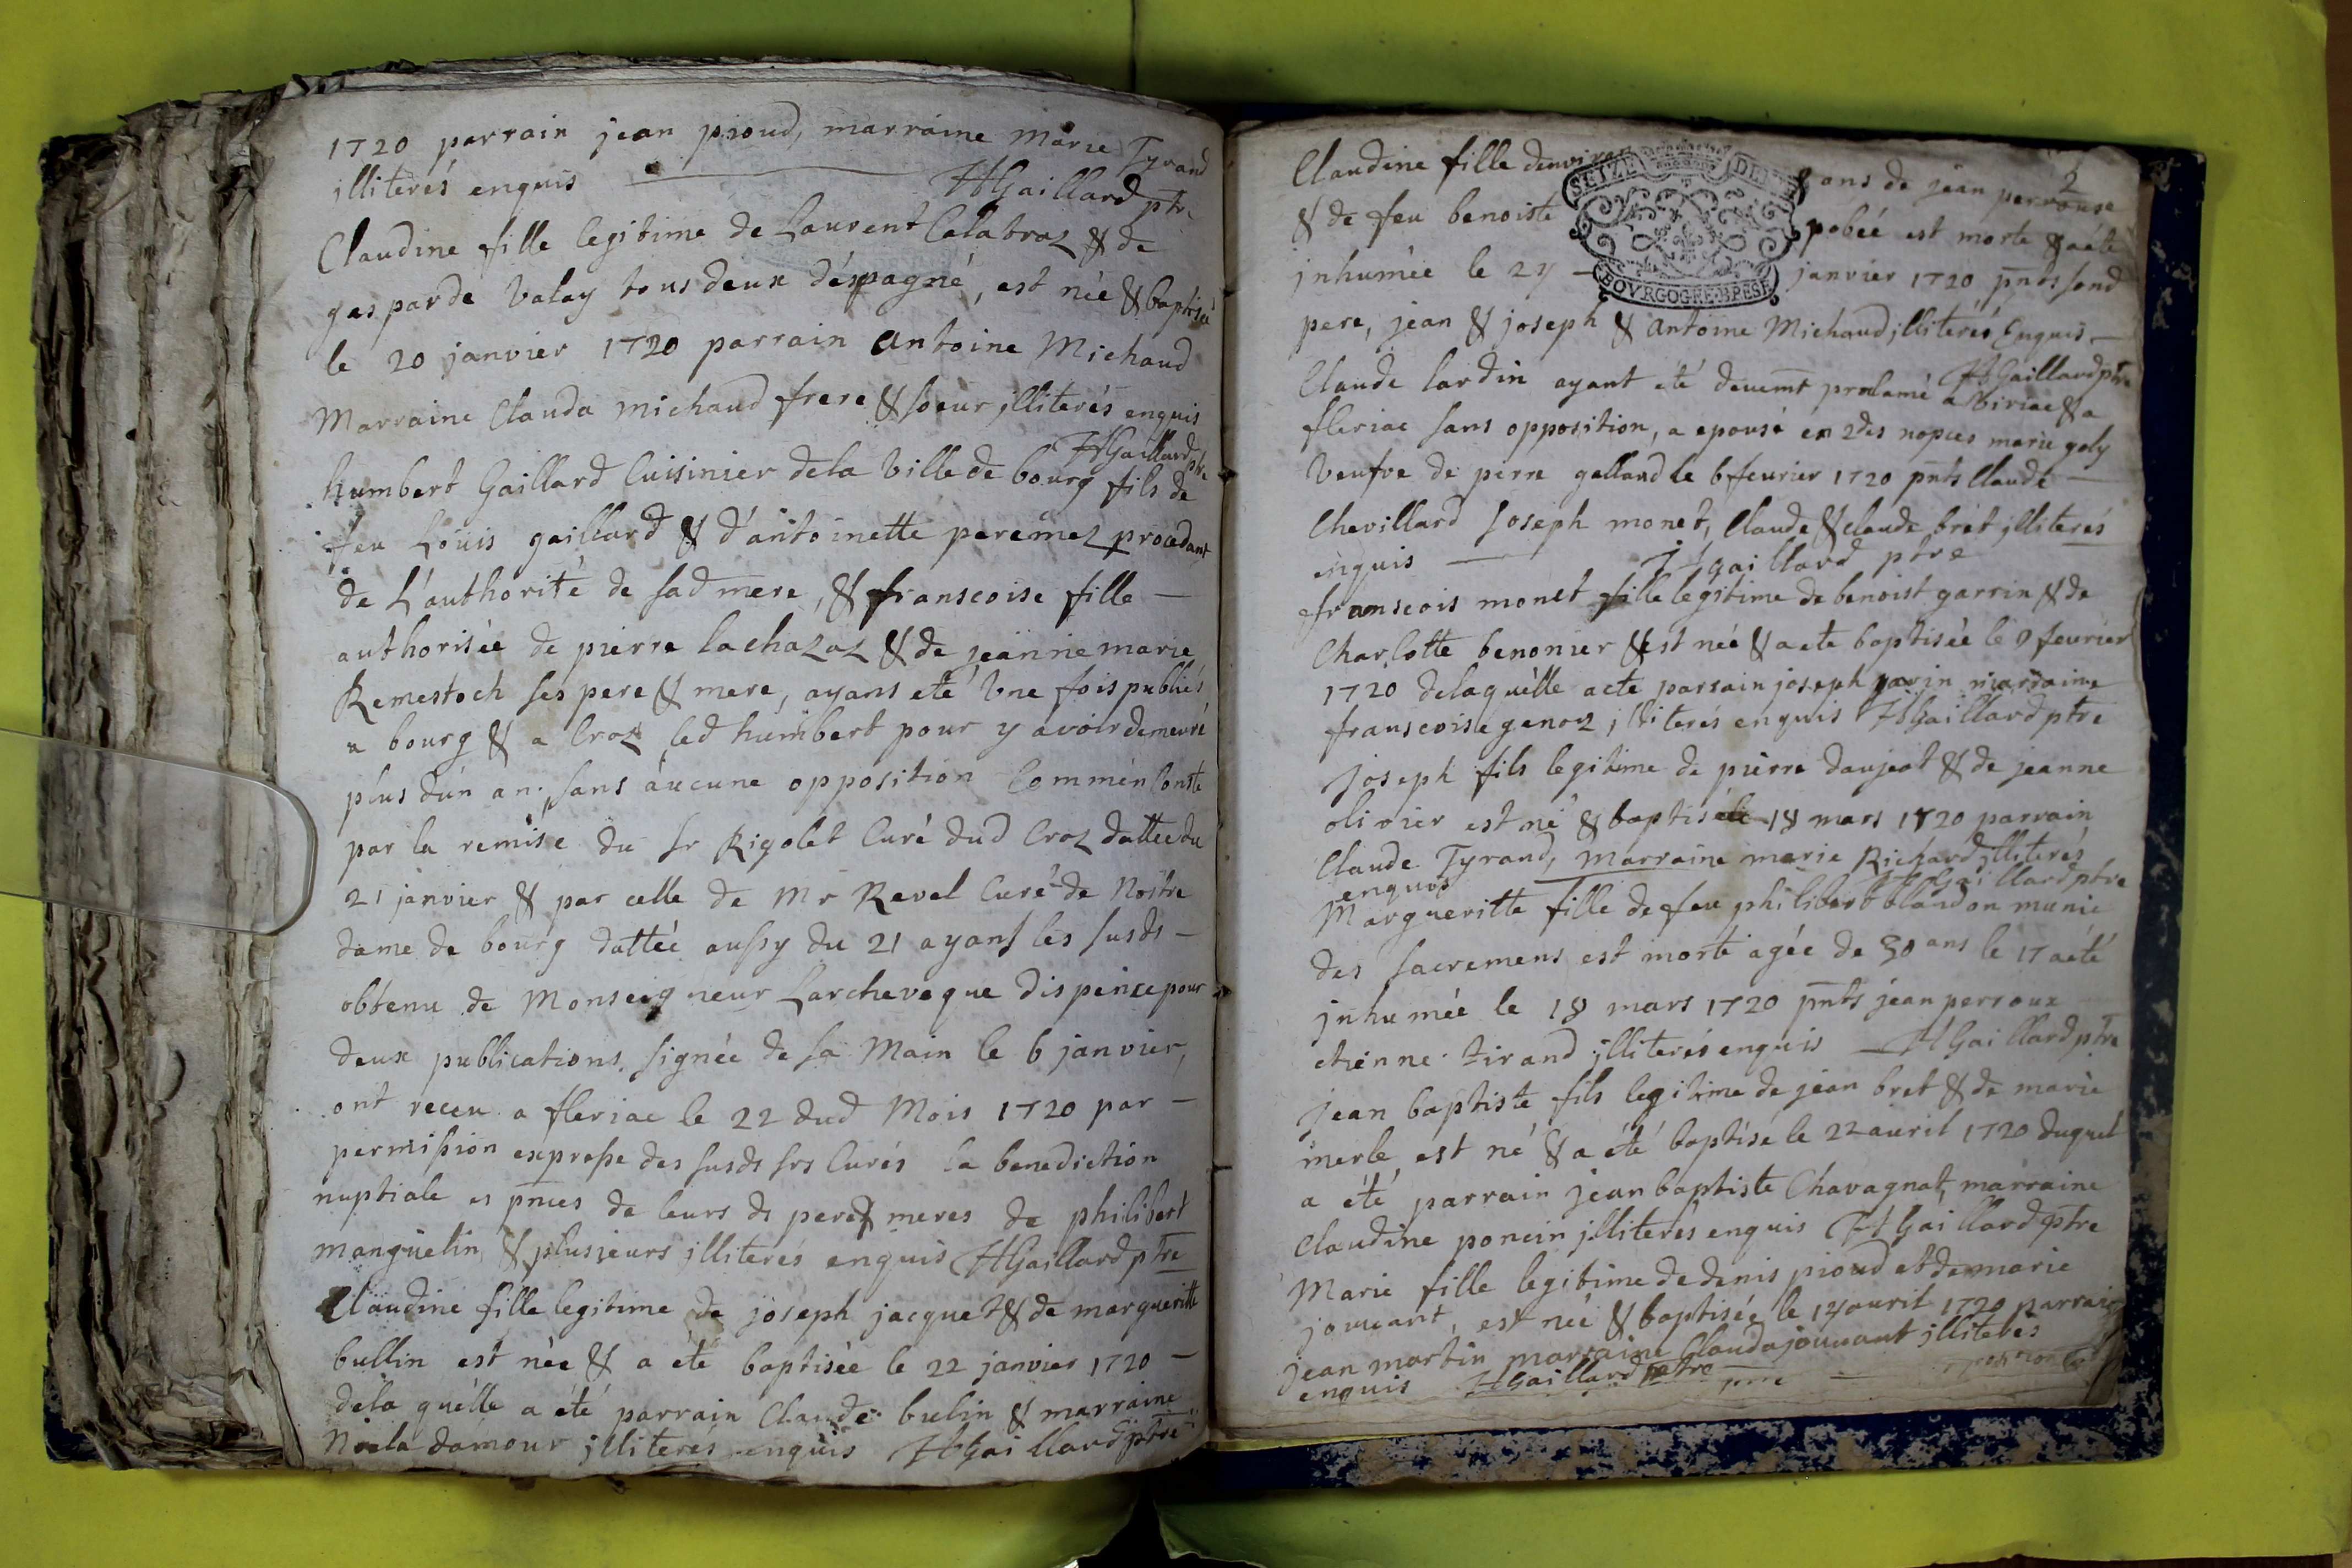 1720 parrain jean pioud, marraine Marie Tyrand
illiterés enquis HGaillard ptre
Claudine fille legitime de Laurent Calatraz & de
gasparde Valay tous deux déspagné, est née & baptisée
le 20 janvier 1720 parrain antoine Michaud
Marraine Clauda michaud frere & soeur illiterés enquis
HGaillard ptre
humbert Gaillard Cuisinier dela Ville de bourg fils de
feu Loüis gaillard & d'antoinette peremez procedant
de L'authorité de sad mere, & franscoise fille —
authorisée de pierre lachazaz & de jeanne marie
Remestoch ses pere & mere, ayans eté Vne fois publiés
a bourg & a Croz led humbert pour y avoir demeuré
plus d'un an, sans aucune opposition Comme'n Conste
par la remise du Sr Rigolet Curé dud Croz dattee du
21 janvier & par celle de Mr Revel Curé de Nostre
dame de bourg dattée aussy du 21 ayans les susds —
obtenu de Monseigneur Larcheveque dispence pour
deux publications signée de sa Main le 6 janvier,
ont receu a fleriac le 22 dud Mois 1720 par —
permission expresse des susds srs Curés la benediction
nuptiale es pnces de leurs ds pere & meres de philibert
manguelin & plusieurs illiterés enquis HGaillard ptre
Claudine fille legitime de joseph jacquet & de margueritte
bullin est née & a été baptisée le 22 janvier 1720 —
dela quélle a été parrain Claude bulin & marraine
Noela damour illiterés enquis HGaillard ptre
2
Claudine fille denviron 8 ans de jean perrouse
& de feu benoiste pobéé est morte & a éte
jnhumée le 27 — janvier 1720 pnts sond
SEIZE DEN
BOVRGOGNE BRESE
pere, jean & joseph & antoine Michaud illiterés Enquis —
HGaillard ptre
Claude lardin ayant eté deuemt proclamé a Viriac & a
fleriac sans opposition, a epousé en 2des nopces marie goly
Veufve de pierre galland le 6 feurier 1720 pnts Claude —
Chevillard Joseph monet, Claude & claude bret illiterés
enquis — HGaillard ptre
franscois monet fille legitime de benoist garrin & de
Charlotte benonier & est née & a ete baptisée le 9 feurier
1720 delaquélle a ete parrain joseph gavin marraine
franscoise genoz illiterés enquis HGaillard ptre
Joseph fils legitime de pierre daujeat & de jeanne
olivier est né & baptisé le 18 mars 1720 parrain
Claude Tyrand, Marraine marie Richard illiterés
enquis HGaillard ptre
Margueritte fille de feu philibert blandon munie
des sacremens est morte agée de 30 ans le 17 a été
jnhumée le 18 mars 1720 pnts jean perroux
etienne tirand illiterés enquis — HGaillard ptre
Jean baptiste fils legitime de jean bret & de marie
merle est né & a été baptisé le 22 auril 1720 duquel
a été parrain jean baptiste Chavagnat, marraine
Claudine poncin illiterés enquis HGaillard ptre
Marie fille legitime de denis pioud et de marie
jouuant, est née & baptisée le 14 auril 1720 parrain
jean martin marraine Clauda jouuant illiterés
enquis HGaillard ptre